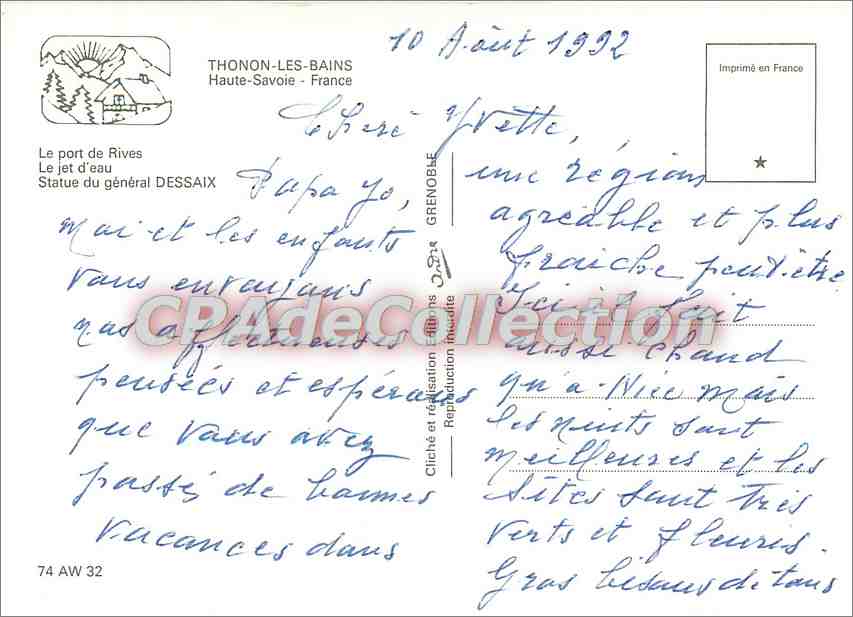 10 Août 1992
THONON-LES-BAINS
Haute-Savoie - France
Imprimé en France
Le port de Rives
Le jet d'eau
Statue du général DESSAIX
Cheré Yvette,
Papa Jo,
moi et les enfants
vous envoyons
nos affectueuses
pensées et espérons
que vous avez
passé de bonnes
vacances dans
une région
agréable et plus
fraiche peut-être
Ici il fait
aussi chaud
qu'a Nice mais
les nuits sont
meilleures et les
sites sont très
verts et fleuris.
Gros bisous de tous
Cliché et réalisation Editions André GRENOBLE
Reproduction interdite
74 AW 32
CPAdeCollection